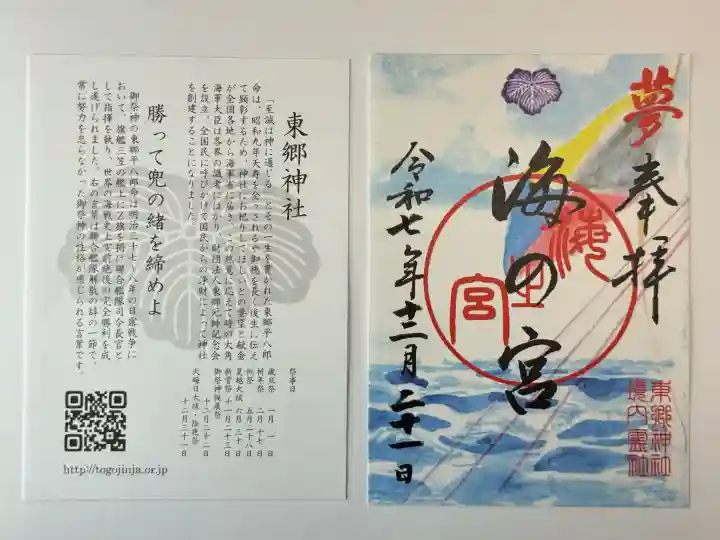 東郷神社
「至誠は神に通じる」とその一生を貫かれた東郷平八郎
命は、昭和九年天寿を全うされるや御徳を長く後生に伝え
て顕彰するため、神社にお祀りしてほしいとの要望と献金
が全国各地から海軍省に届き、この熱意に応えて時の大角
海軍大臣は各界の識者にはかり、財団法人東郷元帥記念会
を設立、全国民に呼びかけて国民からの浄財によって神社
を創建することになりました。
祭事日
歳旦祭 一月一日
祈年祭 二月十七日
例祭 五月二十八日
夏越大祓 六月三十日
新嘗祭 十一月二十三日
御祭神誕辰祭 十二月二十二日
大晦日大祓・除夜祭 十二月三十一日
勝って兜の緒を締めよ
御祭神の東郷平八郎命は明治三十七〜八年の日露戦争に
おいて、旗艦三笠の艦上にZ旗を掲げ聯合艦隊司令長官と
して指揮を執り、世界の海戦史上空前絶後の完全勝利を成
し遂げられました。右の言葉は聯合艦隊解散の辞の一節で、
常に努力を怠らなかった御祭神の性格が感じられる言葉です。
http://togojinja.or.jp
夢
奉拝
海の宮
海の宮
令和七年十二月二十一日
東郷神社
境内霊社